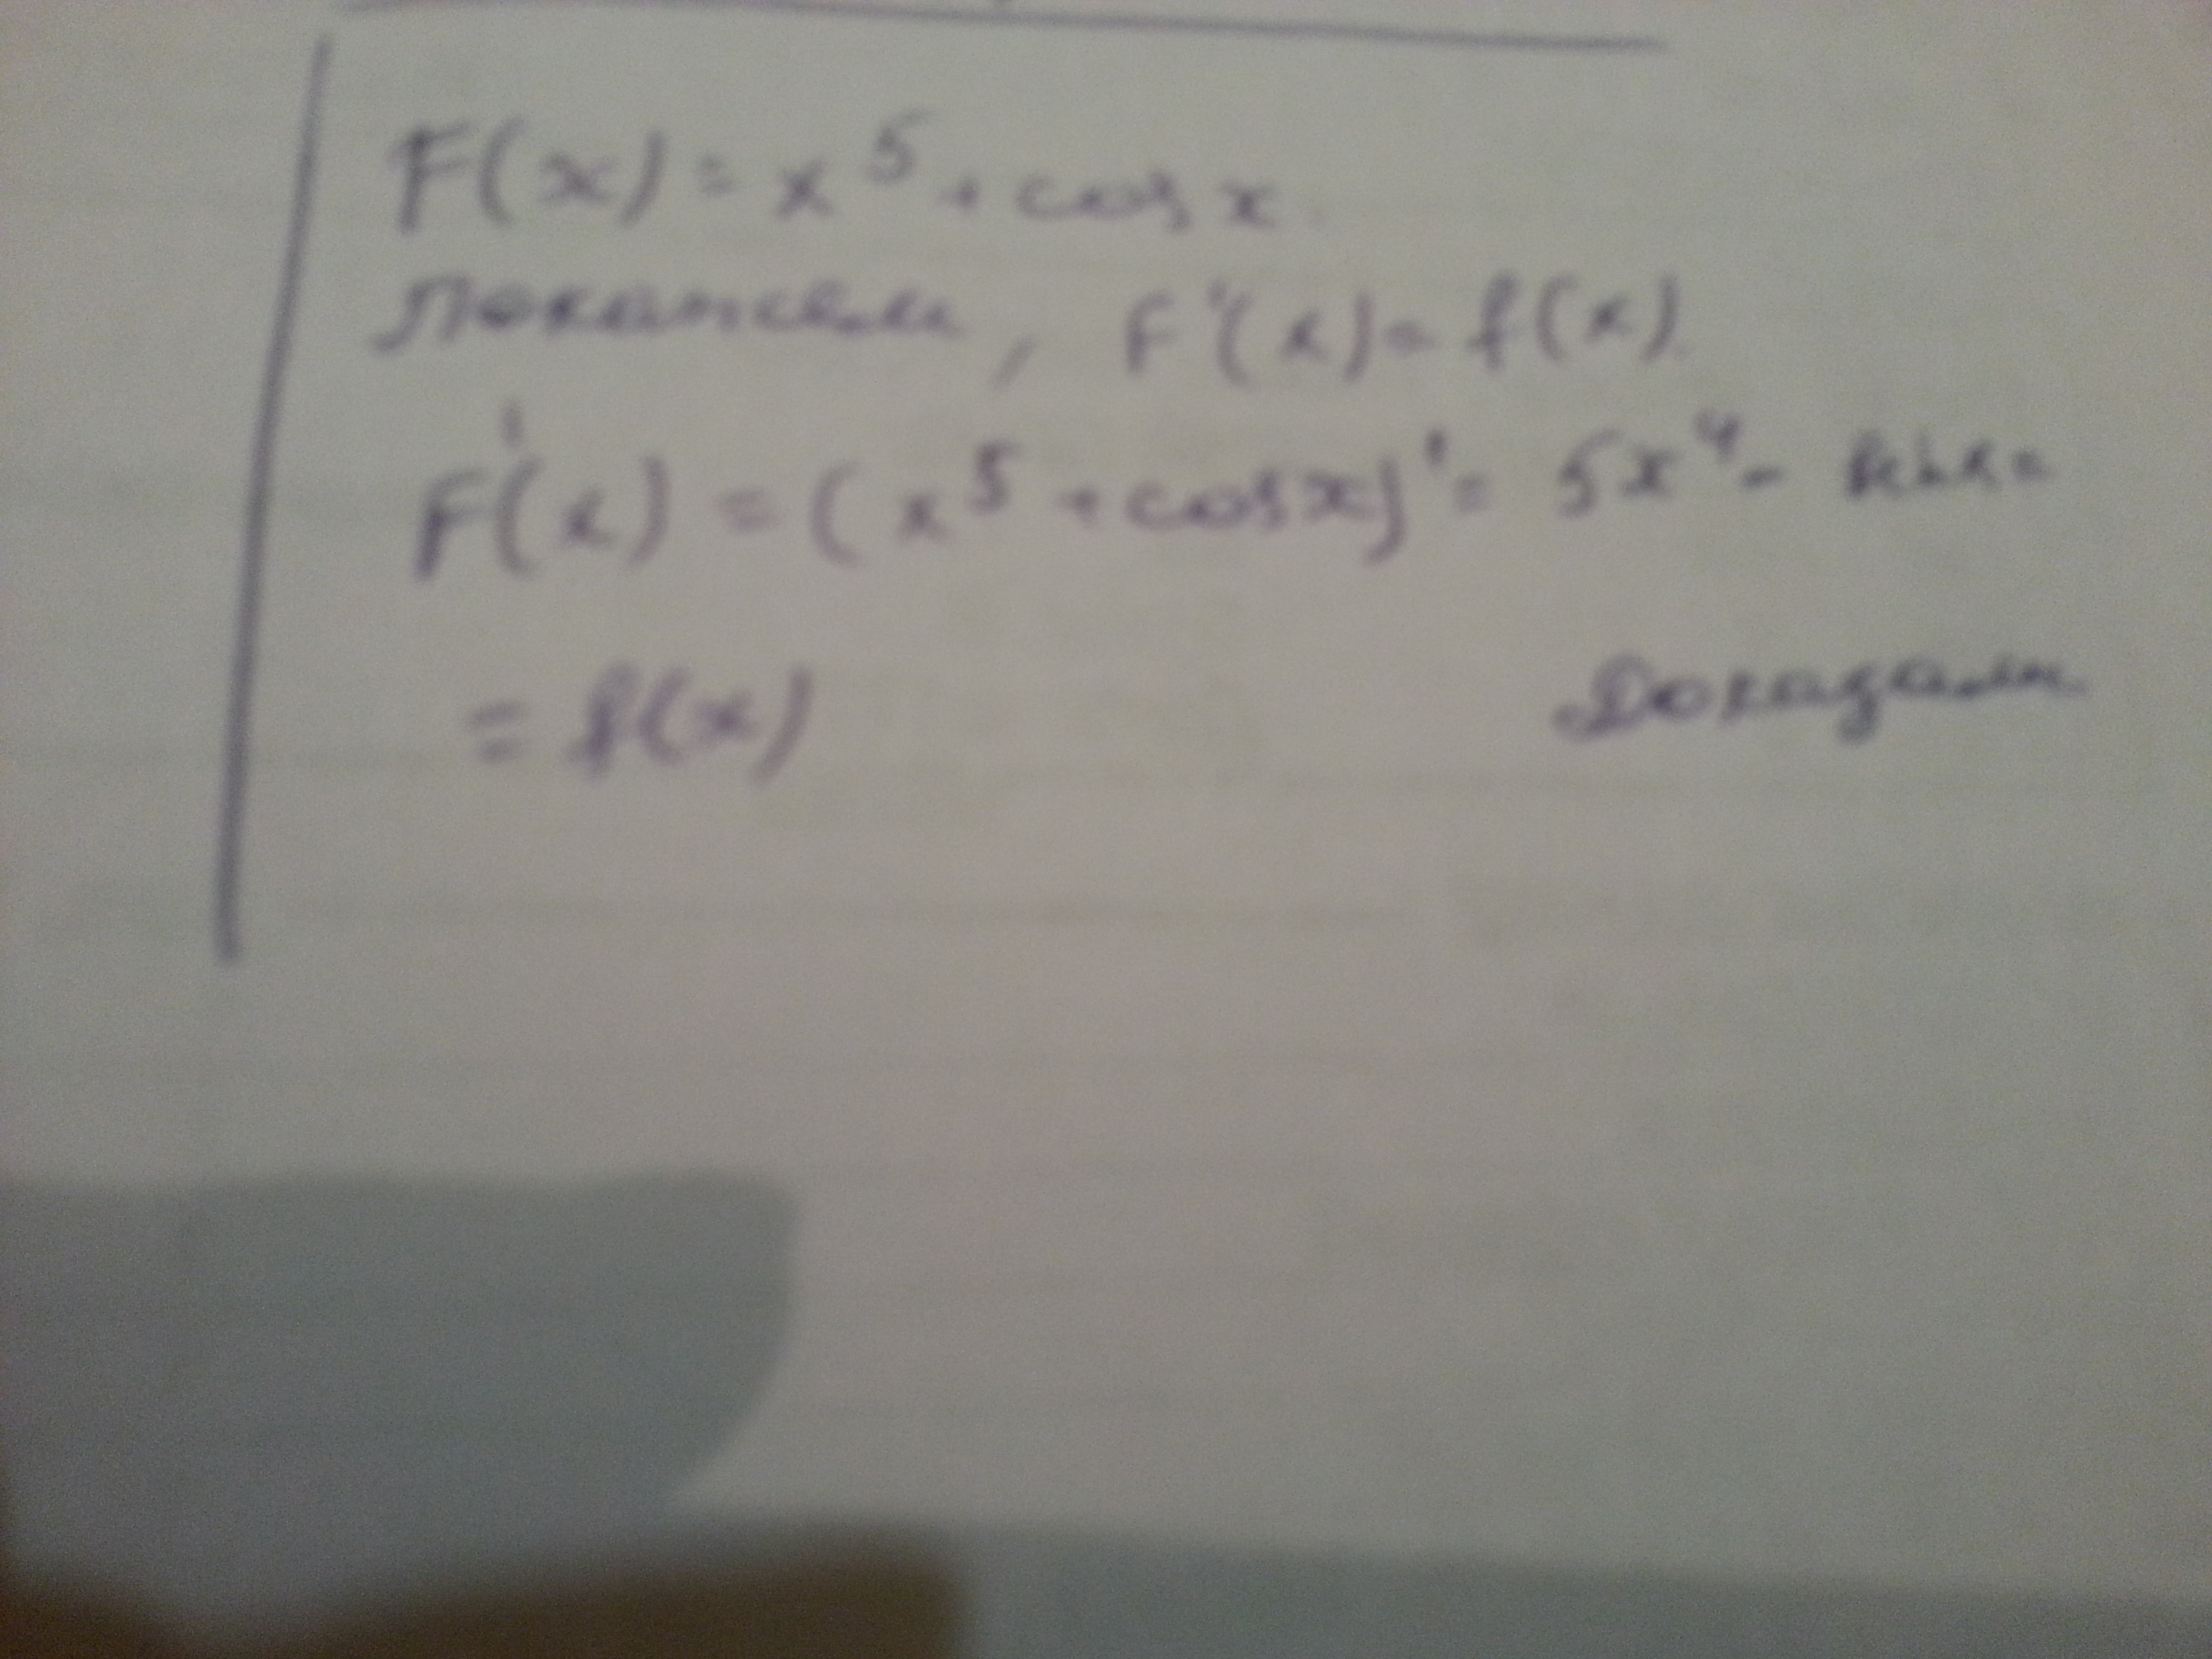 F(x) = x⁵ + cos x.
Покажем, F'(x) = f(x).
F'(x) = (x⁵ + cos x)' = 5x⁴ - sin x =
= f(x) Доказали